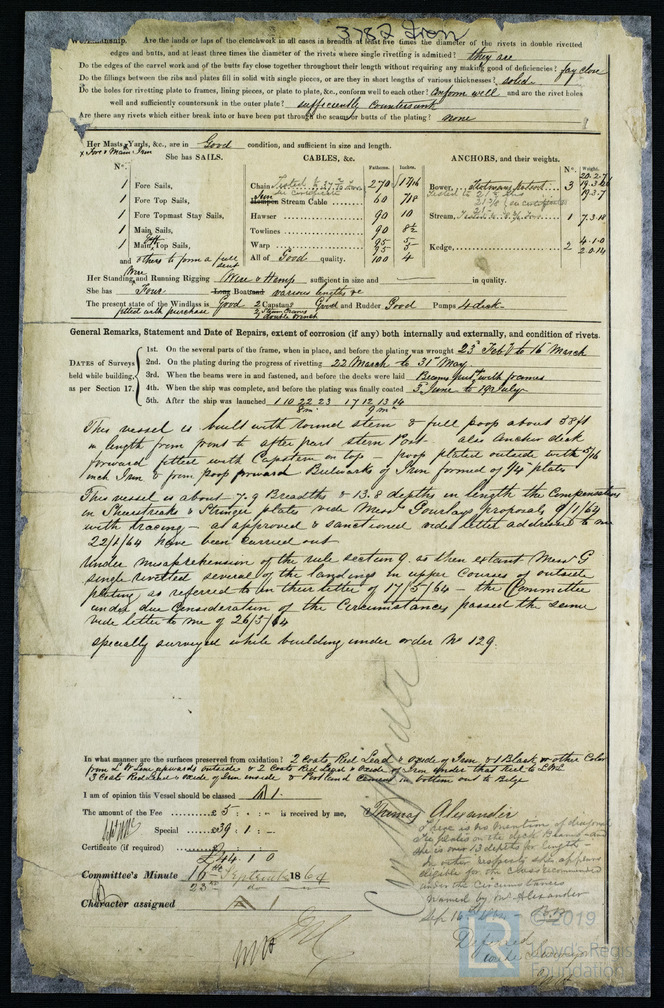 3782 Iron
Workmanship. Are the lands or laps of the clenchwork in all cases in breadth at least five times the diameter of the rivets in double rivetted
edges and butts, and at least three times the diameter of the rivets where single rivetting is admitted? they are
Do the edges of the carvel work and of the butts fay close together throughout their length without requiring any making good of deficiencies? fay close
Do the fillings between the ribs and plates fill in solid with single pieces, or are they in short lengths of various thicknesses? solid
Do the holes for rivetting plate to frames, lining pieces, or plate to plate, &c., conform well to each other? Conform well and are the rivet holes
well and sufficiently countersunk in the outer plate? sufficiently Countersunk
Are there any rivets which either break into or have been put through the seams or butts of the plating? none
Her Masts, Yards, &c., are in Good condition, and sufficient in size and length.
x Fore & Main Iron
She has SAILS. CABLES, &c. ANCHORS, and their weights.
N°. Fathoms. Inches. N°. Weight.
1 Fore Sails,
Chain 270 1 7/16
Bower, 3
1 Fore Top Sails,
Iron Hempen Stream Cable 60 7/8
1 Fore Topmast Stay Sails,
Hawser 90 10
Stream, 1 7.3.18
1 Main Sails,
Towlines 90 8½
1 Main Gaff Top Sails,
Warp 95 5
Kedge, 2 4.1.0
95 5
2.0.14
and others to form a full suit
All of Good quality. 100 4
Her Standing and Running Rigging Wire & Hemp sufficient in size and quality.
She has Four Long Boat and various lengths &c
The present state of the Windlass is Good 2 Capstan Good and Rudder Good Pumps 4 deck
fitted with purchase
General Remarks, Statement and Date of Repairs, extent of corrosion (if any) both internally and externally, and condition of rivets.
DATES of Surveys held while building, as per Section 17.
1st. On the several parts of the frame, when in place, and before the plating was wrought 23 Feby to 16 March
2nd. On the plating during the progress of rivetting 22 March to 31 May
3rd. When the beams were in and fastened, and before the decks were laid Beams put with frames
4th. When the ship was complete, and before the plating was finally coated 3 June to 19 July
5th. After the ship was launched 1 10 22 23 17 12 13 14
8 m. 9 m
This vessel is built with round stern & full poop about 58 ft
in length from front to after part stern post also anchor deck
forward fitted with Capstern on top – poop plated outside with 5/16
inch Iron & from poop forward Bulwarks of Iron formed of 1/4 plates
This vessel is about 7.9 Breadths & 13.8 depths in length the Compensations
in Sheerstrake & Stringer plates vide Messrs Gourlays proposals 9/1/64
with tracing – as approved & sanctioned vide letter addressed to me
22/1/64 have been carried out
Under misapprehension of the rule section 9. as then extant Messrs G
single rivetted several of the landings in upper Courses of outside
plating, as referred to in their letter of 17/5/64 – the Committee
under due Consideration of the Circumstances passed the same
vide letter to me of 26/5/64
specially surveyed while building under order No 129.
In what manner are the surfaces preserved from oxidation? 2 coats Red Lead & oxide of Iron & 1 Black or other Color
from L W Line upwards outside & 2 Coats Red Lead & oxide of Iron under that Keel to LWL
3 Coats Red Lead & oxide of Iron inside & Portland Cement in bottom out to Bilge
I am of opinion this Vessel should be classed A 1.
The amount of the Fee £ 5 : - : - is received by me, Thomas Alexander
Special £39 : 1 : -
Certificate (if required)
£44 . 1 0
Committee's Minute 16th September 1864
23rd do
Character assigned A 1
There is no mention of diagonal
tie plates on the deck beams and
she is over 13 depths for length –
In other respects she appears
eligible for the class recommended
under the circumstances
named by Mr Alexander
Sep 16th 1864
Deferred
© 2019
Lloyd's Register
Foundation